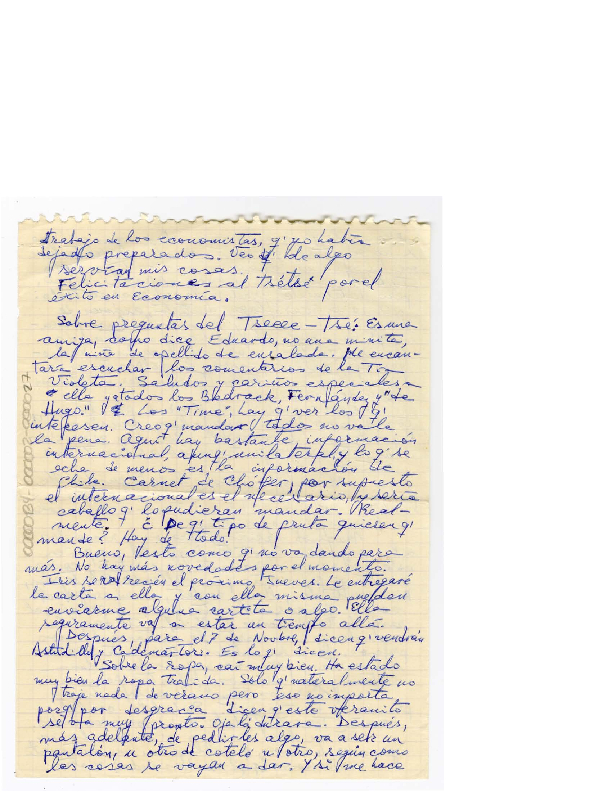 trabajo de los economistas, q' yo había
dejado preparados. Veo q' de algo
servirán mis cosas.
Felicitaciones al Tsétsé por el
éxito en Economía.
Sobre preguntas del Tseeee-Tsé: Es una
amiga, como dice Eduardo, no una minita,
la niña de apellido de ensalada. Me encan-
tará escuchar los comentarios de la Tía
Violeta. Saludos y cariños especiales a
ella y a todos los Bedrack, Fernández y "de
Hugo." Los "Time", hay q' ver los q'
interesen. Creo q' mandar todos no vale
la pena. Aquí hay bastante información
internacional, aunq' unilateral, y lo q' se
echa de menos es la información de
Chile. Carnet de Chófer, por supuesto
el internacional es el necesario, y sería
caballo q' lo pudieran mandar. Real-
mente. ¿De q' tipo de fruta quieren q'
mande? Hay de todo!
Bueno, esto como q' no va dando para
más. No hay más novedades por el momento.
Iris se va recién el próximo Jueves. Le entregaré
la carta a ella y con ella misma pueden
enviarme alguna cartita o algo. Ella
seguramente va a estar un tiempo allá.
Después, para el 7 de Novbre, dicen q' vendrán
Astudillo y Cademártori. Es lo q' dicen.
Sobre la ropa, caí muy bien. Ha estado
muy bien la ropa traída. Sólo q' naturalmente no
traje nada de verano pero eso no importa
porq' por desgracia dicen q' este veranito
se va muy pronto. Ojalá durara. Después,
más adelante, de pedirles algo, va a ser un
pantalón, u otro de cotelé u otro, según como
las cosas se vayan a dar. Y si me hace
0000084-000002-000027